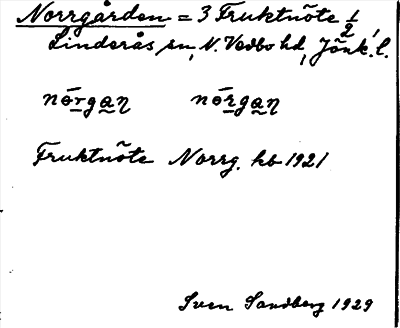 Norrgården = 3 Fruktnöte 1/2
Linderås sn, N. Vedbo hd, Jönk. l.
nórgaņ nórgaņ
Fruktnöte Norrg. kb 1921
Sven Sandberg 1929